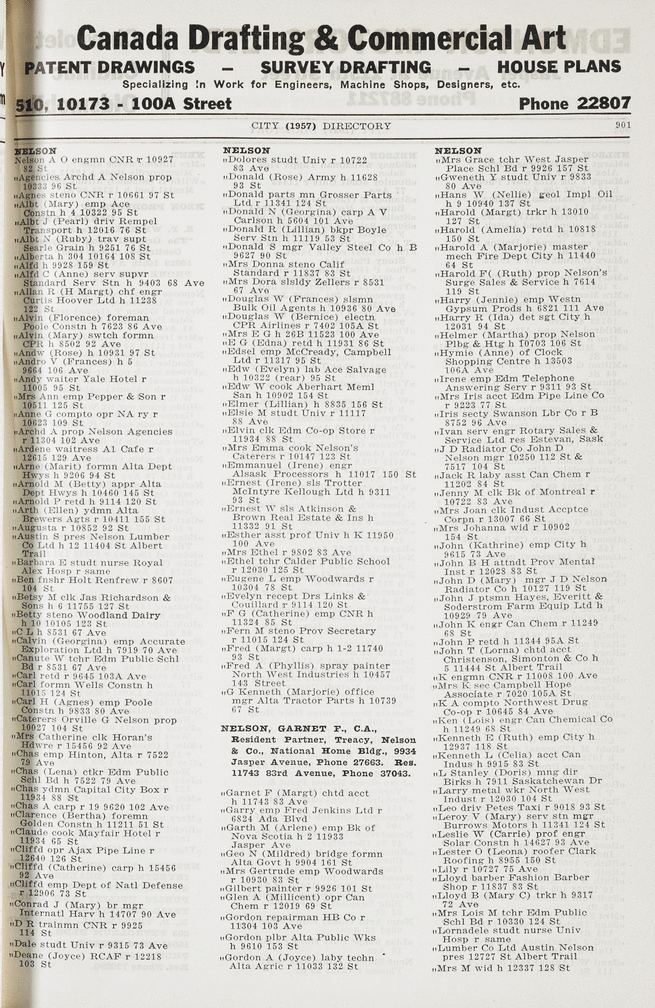 Canada Drafting & Commercial Art
PATENT DRAWINGS — SURVEY DRAFTING — HOUSE PLANS
Specializing in Work for Engineers, Machine Shops, Designers, etc.
510, 10173 - 100A Street Phone 22807
CITY (1957) DIRECTORY 901
NELSON
Nelson A O engmn CNR r 10927
82 St
„Agencies Archd A Nelson prop
10333 96 St
„Agnes steno CNR r 10661 97 St
„Albt (Mary) emp Ace
Constn h 4 10322 95 St
„Albt J (Pearl) driv Rempel
Transport h 12016 76 St
„Albt N (Ruby) trav supt
Searle Grain h 9251 76 St
„Alberta h 304 10164 108 St
„Alfd h 9928 159 St
„Alfd C (Anne) serv supvr
Standard Serv Stn h 9403 68 Ave
„Allan R (H Margt) chf engr
Curtis Hoover Ltd h 11238
122 St
„Alvin (Florence) foreman
Poole Constn h 7623 86 Ave
„Alvin (Mary) swtch formn
CPR h 8502 92 Ave
„Andw (Rose) h 10931 97 St
„Andro V (Frances) h 5
9664 106 Ave
„Andy waiter Yale Hotel r
11005 95 St
„Mrs Ann emp Pepper & Son r
10511 125 St
„Anne G compto opr NA ry r
10623 109 St
„Archd A prop Nelson Agencies
r 11304 102 Ave
„Ardene waitress A1 Cafe r
12615 129 Ave
„Arne (Marit) formn Alta Dept
Hwys h 9206 94 St
„Arnold M (Betty) appr Alta
Dept Hwys h 10460 145 St
„Arnold P retd h 9114 120 St
„Arth (Ellen) ydmn Alta
Brewers Agts r 10411 155 St
„Augusta r 10852 92 St
„Austin S pres Nelson Lumber
Co Ltd h 12 11404 St Albert
Trail
„Barbara E studt nurse Royal
Alex Hosp r same
„Ben fnshr Holt Renfrew r 8607
104 St
„Betsy M clk Jas Richardson &
Sons h 6 11755 127 St
„Betty steno Woodland Dairy
h 10 10105 123 St
„C L h 8531 67 Ave
„Calvin (Georgina) emp Accurate
Exploration Ltd h 7919 70 Ave
„Canute W tchr Edm Public Schl
Bd r 8531 67 Ave
„Carl retd r 9645 103A Ave
„Carl formn Wells Constn h
11015 124 St
„Carl H (Agnes) emp Poole
Constn h 9833 80 Ave
„Caterers Orville G Nelson prop
10027 104 St
„Mrs Catherine clk Horan's
Hdwre r 15456 92 Ave
„Chas emp Hinton, Alta r 7522
79 Ave
„Chas (Lena) ctkr Edm Public
Schl Bd h 7522 79 Ave
„Chas ydmn Capital City Box r
11934 88 St
„Chas A carp r 19 9620 102 Ave
„Clarence (Bertha) foremn
Golden Constn h 11211 51 St
„Claude cook Mayfair Hotel r
11934 65 St
„Cliffd opr Ajax Pipe Line r
12640 126 St
„Cliffd (Catherine) carp h 15456
92 Ave
„Cliffd emp Dept of Natl Defense
r 12906 73 St
„Conrad J (Mary) br mgr
Internatl Harv h 14707 90 Ave
„D R trainmn CNR r 9925
114 St
„Dale studt Univ r 9315 73 Ave
„Deane (Joyce) RCAF r 12218
103 St
NELSON
„Dolores studt Univ r 10722
83 Ave
„Donald (Rose) Army h 11628
93 St
„Donald parts mn Grosser Parts
Ltd r 11341 124 St
„Donald N (Georgina) carp A V
Carlson h 5604 101 Ave
„Donald R (Lillian) bkpr Boyle
Serv Stn h 11119 53 St
„Donald S mgr Valley Steel Co h B
9627 90 St
„Mrs Donna steno Calif
Standard r 11837 83 St
„Mrs Dora slsldy Zellers r 8531
67 Ave
„Douglas W (Frances) slsmn
Bulk Oil Agents h 10936 80 Ave
„Douglas W (Bernice) electn
CPR Airlines r 7402 105A St
„Mrs E G h 26B 11523 100 Ave
„E G (Edna) retd h 11931 86 St
„Edsel emp McCready, Campbell
Ltd r 11317 95 St
„Edw (Evelyn) lab Ace Salvage
h 10322 (rear) 95 St
„Edw W cook Aberhart Meml
San h 10902 154 St
„Elmer (Lillian) h 8835 156 St
„Elsie M studt Univ r 11117
88 Ave
„Elvin clk Edm Co-op Store r
11934 88 St
„Mrs Emma cook Nelson's
Caterers r 10147 123 St
„Emmanuel (Irene) engr
Alsask Processors h 11017 150 St
„Ernest (Irene) sls Trotter
McIntyre Kellough Ltd h 9311
93 St
„Ernest W sls Atkinson &
Brown Real Estate & Ins h
11332 91 St
„Esther asst prof Univ h K 11950
100 Ave
„Mrs Ethel r 9802 83 Ave
„Ethel tchr Calder Public School
r 12030 125 St
„Eugene L emp Woodwards r
10304 78 St
„Evelyn recept Drs Links &
Couillard r 9114 120 St
„F G (Catherine) emp CNR h
11324 85 St
„Fern M steno Prov Secretary
r 11015 124 St
„Fred (Margt) carp h 1-2 11740
93 St
„Fred A (Phyllis) spray painter
North West Industries h 10457
143 Street
„G Kenneth (Marjorie) office
mgr Alta Tractor Parts h 10739
67 St
NELSON, GARNET F., C.A.,
Resident Partner, Treacy, Nelson
& Co., National Home Bldg., 9934
Jasper Avenue, Phone 27663. Res.
11743 83rd Avenue, Phone 37043.
„Garnet F (Margt) chtd acct
h 11743 83 Ave
„Garry emp Fred Jenkins Ltd r
6824 Ada Blvd
„Garth M (Arlene) emp Bk of
Nova Scotia h 2 11933
Jasper Ave
„Geo N (Mildred) bridge formn
Alta Govt h 9904 161 St
„Mrs Gertrude emp Woodwards
r 10930 83 St
„Gilbert painter r 9926 101 St
„Glen A (Millicent) opr Can
Chem r 12019 69 St
„Gordon repairman HB Co r
11304 103 Ave
„Gordon plbr Alta Public Wks
h 9610 153 St
„Gordon A (Joyce) laby techn
Alta Agric r 11033 132 St
NELSON
„Mrs Grace tchr West Jasper
Place Schl Bd r 9926 157 St
„Gweneth Y studt Univ r 9833
80 Ave
„Hans W (Nellie) geol Impl Oil
h 9 10940 137 St
„Harold (Margt) trkr h 13010
127 St
„Harold (Amelia) retd h 10818
150 St
„Harold A (Marjorie) master
mech Fire Dept City h 11440
64 St
„Harold F( (Ruth) prop Nelson's
Surge Sales & Service h 7614
119 St
„Harry (Jennie) emp Westn
Gypsum Prods h 6821 111 Ave
„Harry R (Ida) det sgt City h
12031 94 St
„Helmer (Martha) prop Nelson
Plbg & Htg h 10703 106 St
„Hymie (Anne) of Clock
Shopping Centre h 13503
106A Ave
„Irene emp Edm Telephone
Answering Serv r 9311 93 St
„Mrs Iris acct Edm Pipe Line Co
r 9223 77 St
„Iris secty Swanson Lbr Co r B
8752 96 Ave
„Ivan serv engr Rotary Sales &
Service Ltd res Estevan, Sask
„J D Radiator Co John D
Nelson mgr 10250 112 St &
7517 104 St
„Jack R laby asst Can Chem r
11202 84 St
„Jenny M clk Bk of Montreal r
10722 83 Ave
„Mrs Joan clk Indust Accptce
Corpn r 13007 66 St
„Mrs Johanna wid r 10902
154 St
„John (Kathrine) emp City h
9615 73 Ave
„John B H attndt Prov Mental
Inst r 12028 83 St
„John D (Mary) mgr J D Nelson
Radiator Co h 10127 119 St
„John J ptsmn Hayes, Everitt &
Soderstrom Farm Equip Ltd h
10929 79 Ave
„John K engr Can Chem r 11249
68 St
„John P retd h 11344 95A St
„John T (Lorna) chtd acct
Christenson, Simonton & Co h
5 11444 St Albert Trail
„K engmn CNR r 11008 100 Ave
„Mrs K sec Campbell Hope
Associate r 7020 105A St
„K A compto Northwest Drug
Co-op r 10645 84 Ave
„Ken (Lois) engr Can Chemical Co
h 11249 68 St
„Kenneth E (Ruth) emp City h
12937 118 St
„Kenneth L (Celia) acct Can
Indus h 9915 83 St
„L Stanley (Doris) mng dir
Birks h 7911 Saskatchewan Dr
„Larry metal wkr North West
Indust r 12030 104 St
„Leo driv Petes Taxi r 9018 93 St
„Leroy V (Mary) serv stn mgr
Burrows Motors h 11341 124 St
„Leslie W (Carrie) prof engr
Solar Constn h 14627 93 Ave
„Lester O (Leona) roofer Clark
Roofing h 8955 150 St
„Lily r 10727 75 Ave
„Lloyd barber Fashion Barber
Shop r 11837 83 St
„Lloyd B (Mary C) trkr h 9317
72 Ave
„Mrs Lois M tchr Edm Public
Schl Bd r 10330 124 St
„Lornadele studt nurse Univ
Hosp r same
„Lumber Co Ltd Austin Nelson
pres 12727 St Albert Trail
„Mrs M wid h 12337 128 St